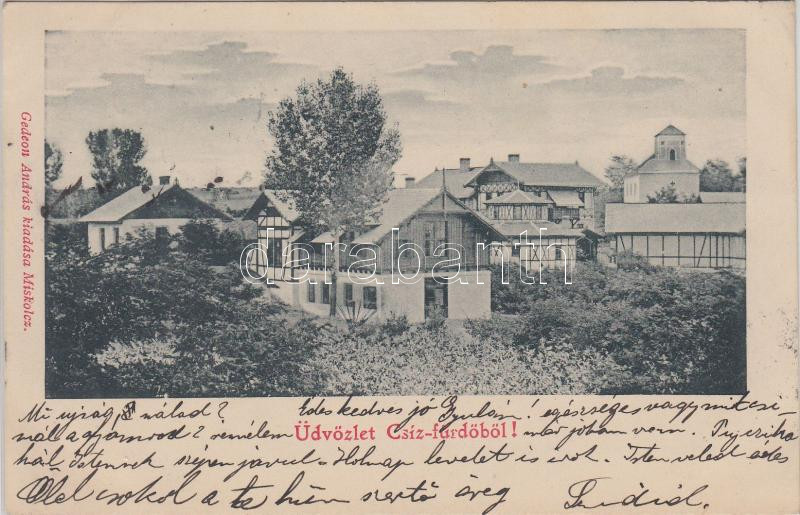 Gedeon András kiadása Miskolcz.
darabanth
Mi ujság nálad? Édes kedves jó Gyulám! egészséges vagy mit csi-
nál a gyomrod? remélem Üdvözlet Csíz-fürdőből! már jobban vagy.
hál Istennek szépen javul - Holnap levelet is írok. Isten veled édes
Ölel csókol a te hűen szerető öreg